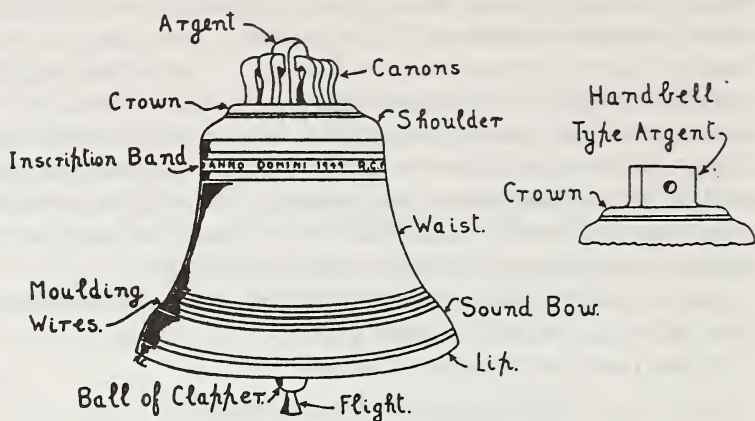 Argent
Canons
Crown
Shoulder
Inscription Band
ANNO DOMINI 1949 R.C.P
Waist.
Moulding
Wires.
Sound Bow.
Lip.
Ball of Clapper.
Flight.
Handbell
Type Argent
Crown